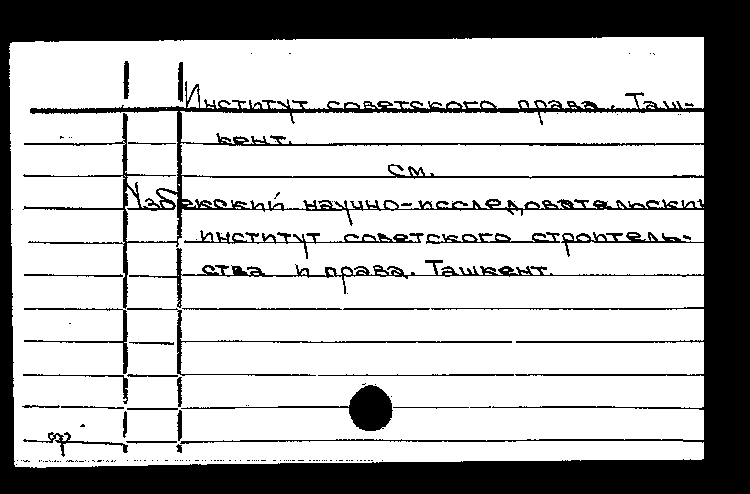 Институт советского права. Таш-
кент.
см.
Узбекский научно-исследовательский
институт советского строитель-
ства и права. Ташкент.
ф